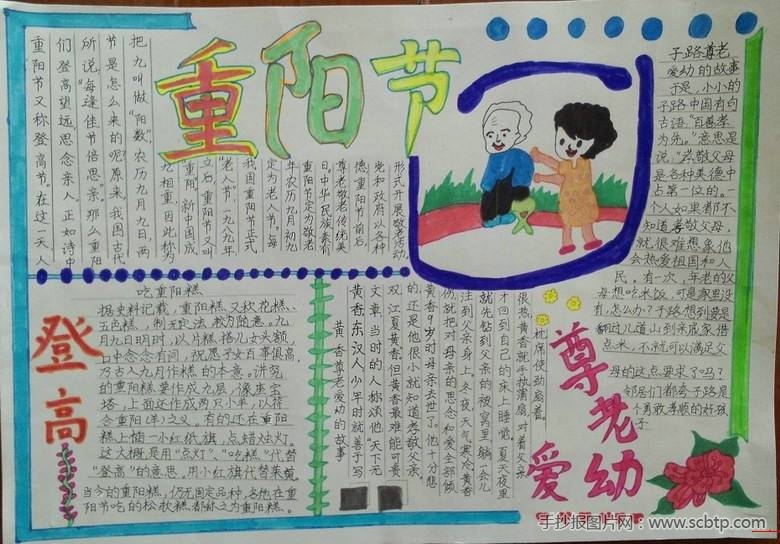 重阳节
重阳节又称登高节。在这一天人
们登高望远,思念亲人。正如诗中
所说,“每逢佳节倍思亲”。那么重阳
节是怎么来的呢?原来,我国古代
把九叫做“阳数”,农历九月九日,两
九相重,因此称为
“重阳”。新中国成
立后,重阳节又叫
“老人节”。一九八九年,
我国重阳节正式
定为老人节。每
年农历九月初九
重阳节定为敬老
日。中华民族素有
尊老敬老传统美
德,重阳节前后,
党和政府以各种
形式开展敬老活动。
子路尊老
爱幼的故事
于是,小小的
子路中国有句
古语,“百善孝
为先。”意思是
说,“孝敬父母
是各种美德中
占第一位的。一
个人如果都不
知道孝敬父母,
就很难想象他
会热爱祖国和人
民。有一次,年老的父
母想吃米饭,可是家里没
有,怎么办?子路想到要是
翻过几道山到亲戚家借
点米,不就可以满足父
母的这点要求了吗?
邻居们都夸子路是
个勇敢孝顺的好孩
子
登高
吃重阳糕
据史料记载,重阳糕又称花糕、
五色糕,制无定法,较为随意。九
月九日明时,以片糕搭儿女头额,
口中念念有词,祝愿子女百事俱高,
乃古人九月作糕的本意。讲究
的重阳糕要作成九层,像座宝
塔,上面还作成两只小羊,以符
合重阳(羊)之义。有的还在重阳
糕上插一小红纸旗,点蜡烛灯。
这大概是用“点灯”、“吃糕”代替
“登高”的意思。用小红纸旗代替茱萸。
当今的重阳糕,仍无固定品种,各地在重
阳节吃的松软糕都称之为重阳糕。
黄香尊老爱幼的故事
黄香,东汉人,少年时就善于写
文章,当时的人称颂他“天下无
双,江夏黄香”,但黄香最难能可贵
的还是他很小就知道孝敬父亲。
黄香9岁时母亲去世了,他十分悲
伤,就把对母亲的思念和爱全部倾
注到父亲身上。冬夜,天气寒冷,黄香
就先钻到父亲的被窝里,躺一会儿
才回到自己的床上睡觉。夏天夜里
很热,黄香就手执蒲扇,对着父亲
枕席使劲扇着。
尊老
爱幼
手抄报图片网:www.scbtp.com